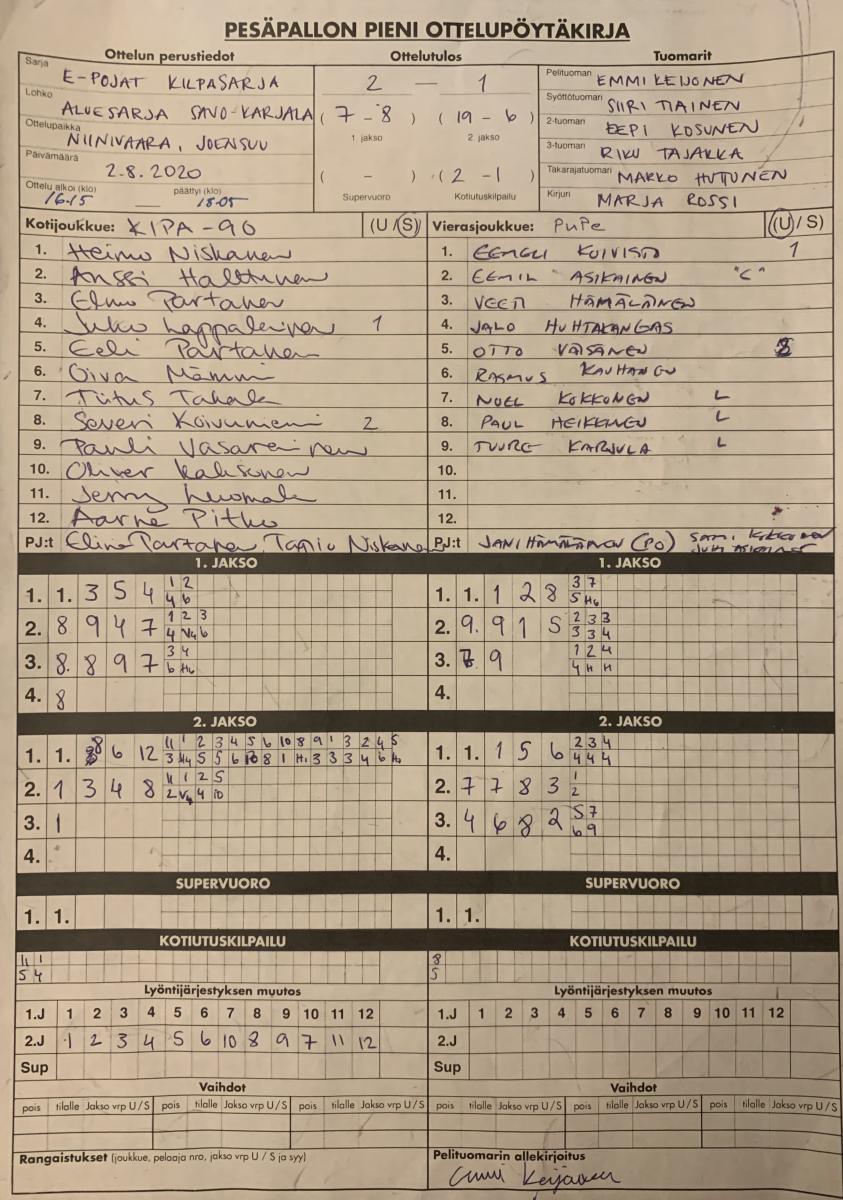 PESÄPALLON PIENI OTTELUPÖYTÄKIRJA
Ottelun perustiedot
Sarja E-POJAT KILPASARJA
Lohko ALUESARJA SAVO-KARJALA
Ottelupaikka NIINIVAARA, JOENSUU
Päivämäärä 2.8.2020
Ottelu alkoi (klo) 16.15 — päättyi (klo) 18.05
Ottelutulos
2 — 1
( 7 - 8 ) ( 19 - 6 )
1 jakso 2. jakso
( - ) ( 2 - 1 )
Supervuoro Kotiutuskilpailu
Tuomarit
Pelituomari EMMI KEIJONEN
Syöttötuomari SIIRI TIAINEN
2-tuomari EEPI KOSUNEN
3-tuomari RIKU TAJAKKA
Takarajatuomari MARKO HUTUNEN
Kirjuri MARJA ROSSI
Kotijoukkue: KIPA-90 (U/S)
1. Heimo Niskanen
2. Anssi Halttunen
3. Elmo Partanen
4. Juho Lappalainen 1
5. Eeli Partanen
6. Oiva Mämmi
7. Tiitus Tahala
8. Severi Koivuniemi 2
9. Pauli Vasarainen
10. Oliver
11. Jerry Luomala
12. Aarne Pitko
PJ:t Elina Partanen, Niskanen
Vierasjoukkue: PuPe (U/S)
1. EEMELI KOIVISTO 1
2. EEMIL ASIKAINEN "C"
3. VEETI HÄMÄLÄINEN
4. JALO HUHTAKANGAS
5. OTTO VÄISÄNEN
6. RASMUS KAUHANEN
7. NOEL KOKKONEN L
8. PAUL HEIKKINEN L
9. TUURE KARJULA L
10.
11.
12.
PJ:t JANI HÄMÄLÄINEN (PO) SAMI KOKKONEN
1. JAKSO
1. 1. 3 5 4 1 2
4 6
2. 8 9 4 7 1 2 3
4 V4 6
3. 8. 8 9 7 3 4
6 H6
4. 8
1. JAKSO
1. 1. 1 2 8 3 7
5 H6
2. 9. 9 1 5 2 3 3
3 3 4
3. 9 1 2 4
4 H H
4.
2. JAKSO
1. 1. 8 6 12 11 1 2 3 4 5 6 10 8 9 1 3 2 4 5
3 H4 5 5 6 10 8 1 H1 3 3 3 4 6
2. 1 3 4 8 11 1 2 5
2 V4 4 10
3. 1
4.
2. JAKSO
1. 1. 1 5 6 2 3 4
4 4 4
2. 7 7 8 3 1
2
3. 4 6 8 2 5 7
6 9
4.
SUPERVUORO
1. 1.
SUPERVUORO
1. 1.
KOTIUTUSKILPAILU
11 1
5 4
KOTIUTUSKILPAILU
8
5
Lyöntijärjestyksen muutos
1.J 1 2 3 4 5 6 7 8 9 10 11 12
2.J 1 2 3 4 5 6 10 8 9 7 11 12
Sup
Lyöntijärjestyksen muutos
1.J 1 2 3 4 5 6 7 8 9 10 11 12
2.J
Sup
Vaihdot
pois tilalle Jakso vrp U/S pois tilalle Jakso vrp U/S pois tilalle Jakso vrp U/S
Vaihdot
pois tilalle Jakso vrp U/S pois tilalle Jakso vrp U/S pois tilalle Jakso vrp U/S
Rangaistukset (joukkue, pelaaja nro, jakso vrp U / S ja syy)
Pelituomarin allekirjoitus
Emmi Keijonen